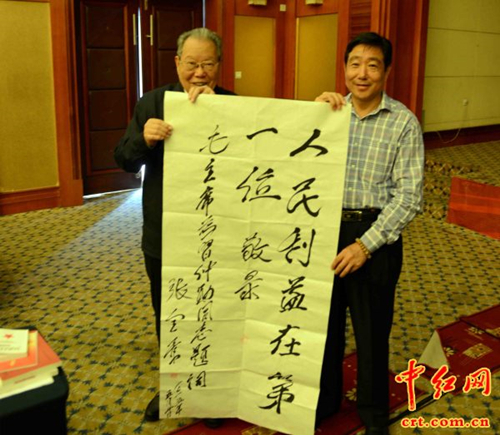 人民利益在第
一位 敬录
毛主席为習仲勋同志题词
张全景
中红网
crt.com.cn